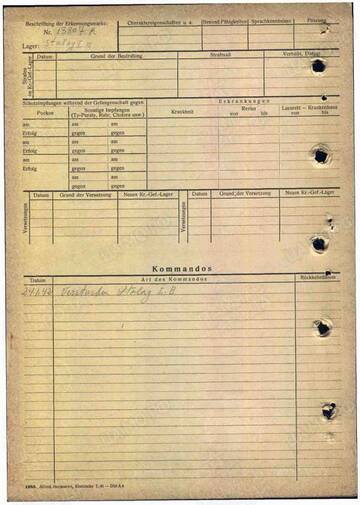 Beschriftung der Erkennungsmarke:
Nr.
Lager: Stalag
Charaktereigenschaften u. a.
Besond. Fähigkeiten
Sprachkenntnisse
Führung
Strafen im Kr.-Gef.-Lager
Datum
Grund der Bestrafung
Strafmaß
Verbüßt, Datum
Schutzimpfungen während der Gefangenschaft gegen
Erkrankungen
Pocken
Sonstige Impfungen
(Ty-Paraty, Ruhr, Cholera usw.)
Krankheit
Revier
von bis
Lazarett – Krankenhaus
von bis
am am am
Erfolg gegen gegen
am am am
Erfolg gegen gegen
am am am
Erfolg gegen gegen
am am
gegen gegen
Versetzungen
Datum
Grund der Versetzung
Neues Kr.-Gef.-Lager
Versetzungen
Datum
Grund der Versetzung
Neues Kr.-Gef.-Lager
Kommandos
Datum
Art des Kommandos
Rückkehrdatum
Verstorben Stalag